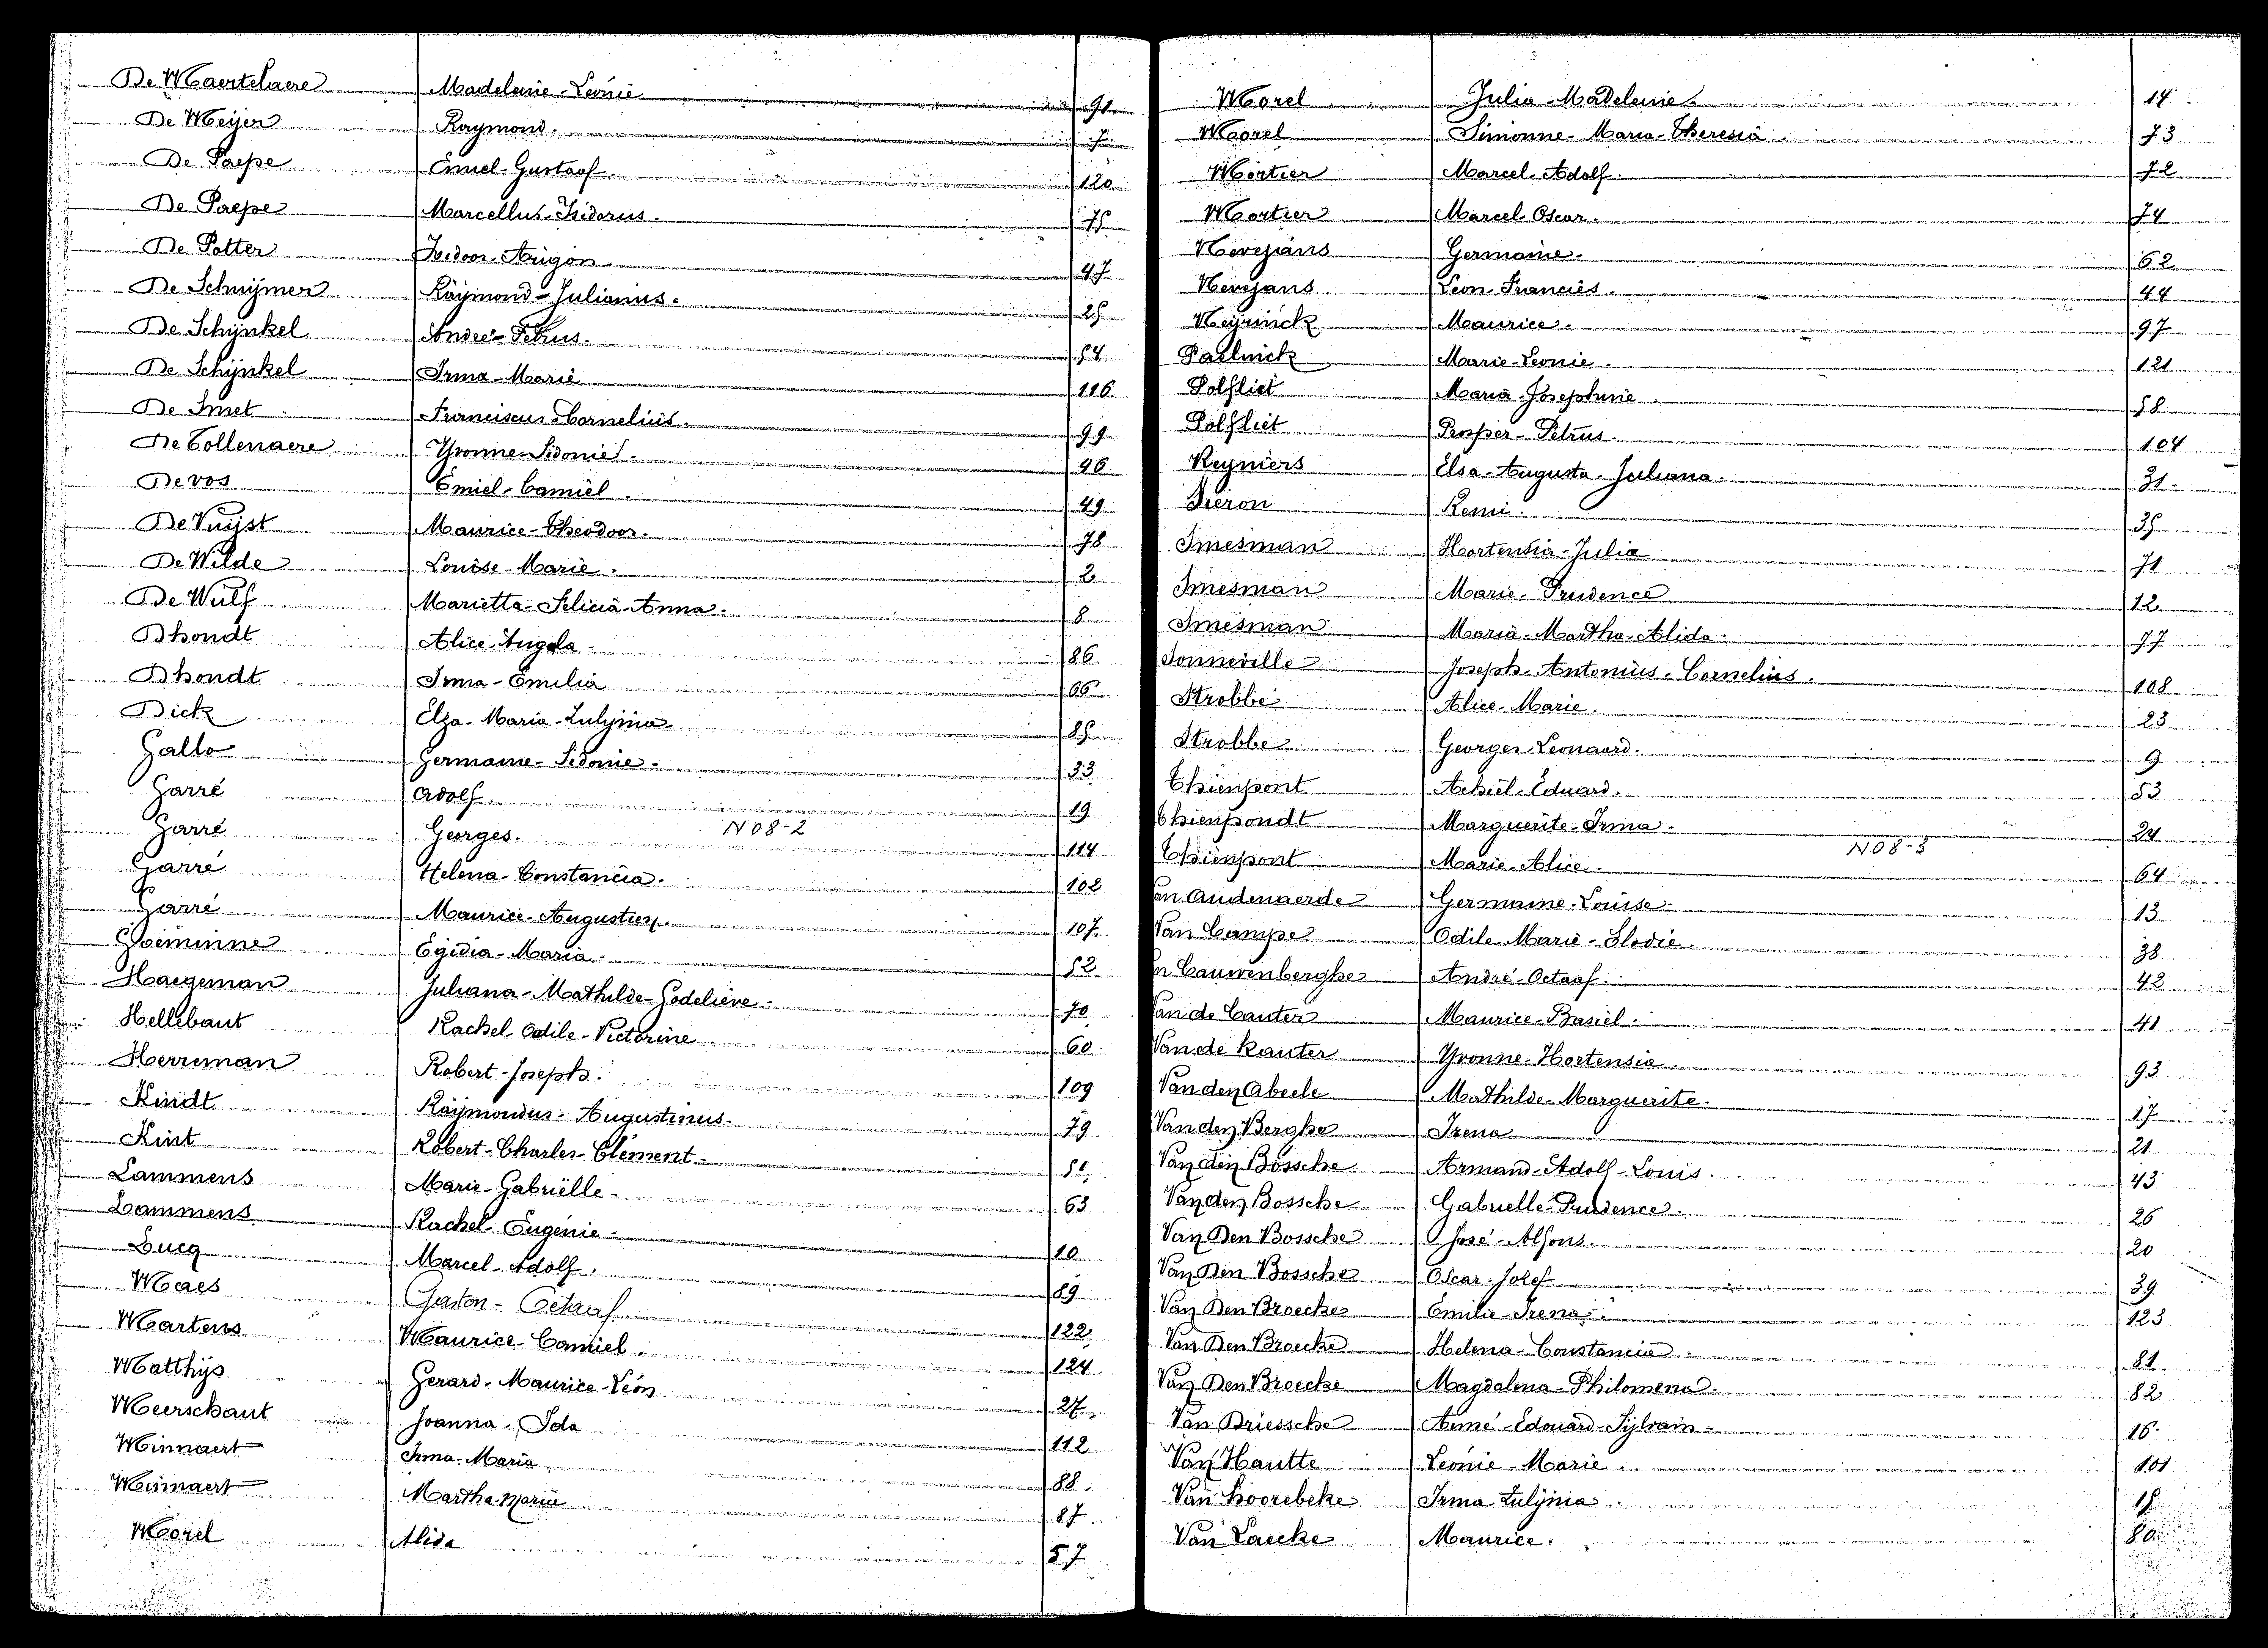 De Maertelaere Madeleine-Leonie 91
De Meijer Raymond. 7
De Paepe Emiel-Gustaaf. 120
De Paepe Marcellus-Isidorus. 75
De Potter Isidoor- 47
De Schrijmer Raÿmond-Julianus. 25
De Schijnkel André-Petrus. 54
De Schijnkel Irma-Marie 116
De Smet Franciscus-Cornelius. 99
De Collenaere Yvonne-Sidonie. 46
De vos Emiel-Camiel. 49
De Vuijst Maurice-Theodoor. 78
De Wilde Louise-Marie. 2
De Wulf Marietta-Felicia-Anna. 8
Dhondt Alice-Angela. 86
Dhondt Irma-Emilia 66
Dick Elza-Maria-Zulijma. 85
Gallo Germaine-Sidonie. 33
Garré Adolf. 19
Garré Georges. N 08-2 114
Garré Helena-Constancia. 102
Garré Maurice-Augustien. 107
Goeminne Egidia-Maria. 52
Haegeman Juliana-Mathilde-Godelieve. 70
Hellebaut Rachel-Odile-Victorine 60
Herreman Robert-Joseph. 109
Kindt Raÿmondus-Augustinus. 79
Kint Robert-Charles-Clément. 51
Lammens Marie-Gabriëlle. 63
Lammens Rachel-Eugenie. 10
Lucq Marcel-Adolf. 89
Maes Gaston-Octaaf 122
Martens Maurice-Camiel. 124
Matthijs Gerard-Maurice-Léon 27
Meerschaut Joanna-Ida 112
Minnaert Irma-Maria 88
Minnaert Martha-Maria 87
Morel Alida 57
Morel Julia-Madeleine. 14
Morel Simonne-Maria-Theresia 73
Mortier Marcel-Adolf. 72
Mortier Marcel-Oscar. 74
Nevejans Germaine. 62
Nevejans Léon-Franciës. 44
Neijrinck Maurice. 97
Paelinck Marie-Leonie. 121
Polfliet Maria-Josephine 58
Polfliet Prosper-Petrus. 104
Reyniers Elsa-Augusta-Juliana. 31
Sieron Remi. 35
Smesman Hortensia-Julia 71
Smesman Marie-Prudence 12
Smesman Maria-Martha-Alida. 77
Sonneville Joseph-Antonius-Cornelius. 108
Strobbe Alice-Marie. 23
Strobbe Georges-Leonaard. 9
Thienpont Achiel-Eduard. 53
Thienpondt Marguerite-Irma. 24
Thienpont Marie-Alice. N 08-3 64
an Audenaerde Germaine-Louise. 13
Van Campe Odile-Marie-Elodie. 38
n Cauwenberghe André-Octaaf. 42
Van de Canter Maurice-Basiel. 41
Van de Kanter Yvonne-Hortensia. 93
Van den Abeele Mathilde-Marguerite. 17
Van den Berghe Irena 21
Van den Bossche Armand-Adolf-Louis. 43
Van den Bossche Gabrielle-Prudence. 26
Van Den Bossche José-Alfons. 20
Van Den Bossche Oscar-Jozef 39
Van Den Broecke Emilie-Irena. 123
Van Den Broecke Helena-Constancia 81
Van Den Broecke Magdalena-Philomena. 82
Van Driessche Aimé-Edouard-Sijlvain. 16
Van Hautte Leonie-Marie. 101
Van Hoorebeke Irma-Zulijma. 18
Van Laecke Maurice. 80